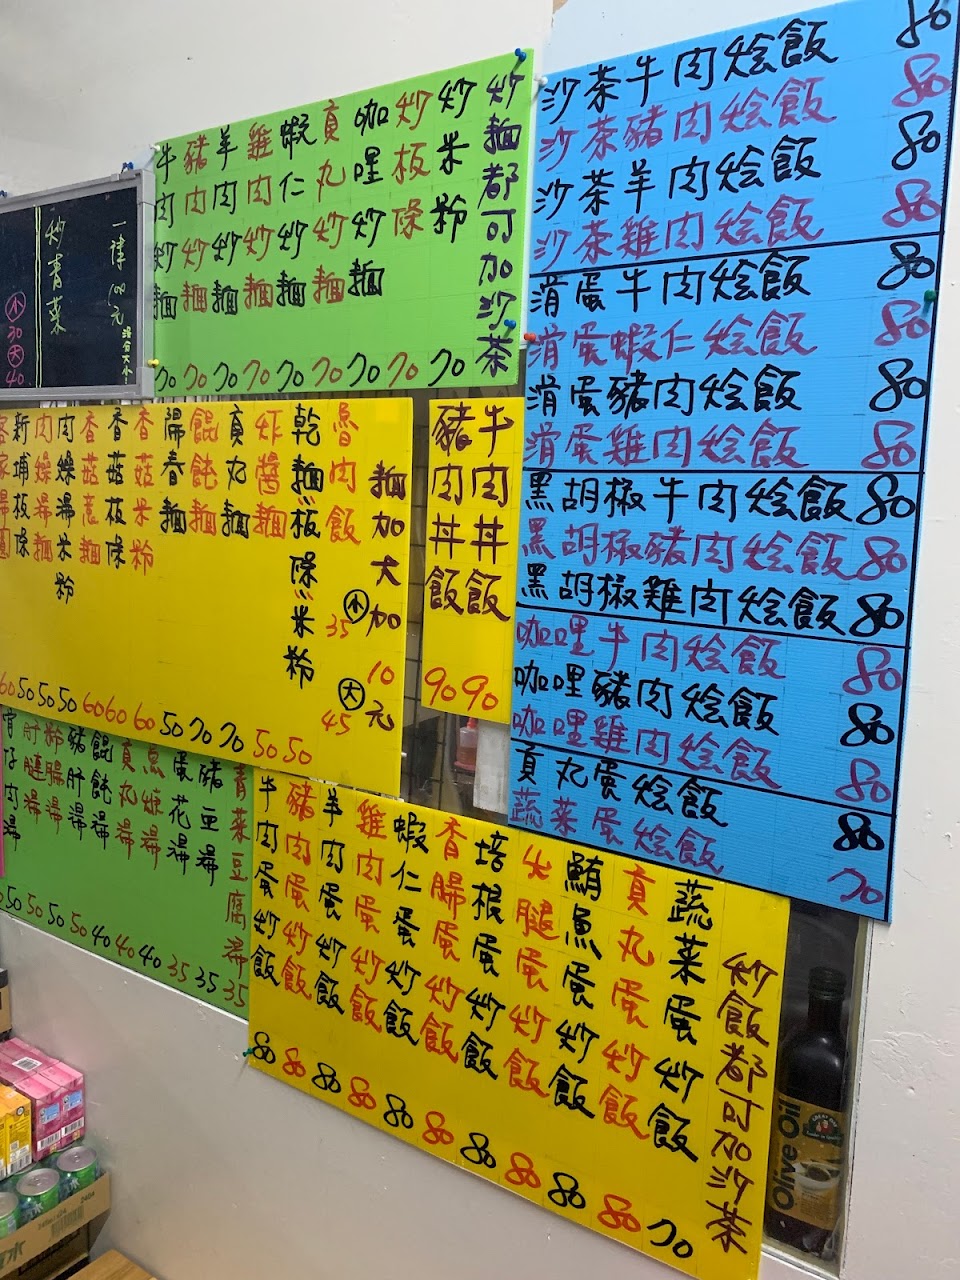 沙茶牛肉燴飯 80
沙茶豬肉燴飯 80
沙茶羊肉燴飯 80
沙茶雞肉燴飯 80
滑蛋牛肉燴飯 80
滑蛋蝦仁燴飯 80
滑蛋豬肉燴飯 80
滑蛋雞肉燴飯 80
黑胡椒牛肉燴飯 80
黑胡椒豬肉燴飯 80
黑胡椒雞肉燴飯 80
咖哩牛肉燴飯 80
咖哩豬肉燴飯 80
咖哩雞肉燴飯 80
貢丸蛋燴飯 80
蔬菜蛋燴飯 70
炒麵都可加沙茶
炒米粉 70
炒板條 70
咖哩炒麵 70
貢丸炒麵 70
蝦仁炒麵 70
雞肉炒麵 70
羊肉炒麵 70
豬肉炒麵 70
牛肉炒麵 70
一律100元
炒青菜
小30大40
牛肉丼飯 90
豬肉丼飯 90
麵加大加10元
魯肉飯 小35 大45
乾麵板條米粉 50
炸醬麵 50
貢丸麵 70
餛飩麵 70
陽春麵 50
香菇米粉 60
香菇板條 60
香菇麵 60
肉湯米粉 50
肉燥湯麵 50
新埔板條 50
客家湯圓 60
青菜豆腐湯 35
豬豆湯 35
蛋花湯 35
魚湯 40
貢丸湯 40
餛飩湯 40
豬肝湯 50
粉腸湯 50
肝腱湯 50
仔肉湯 50
炒飯都可加沙茶
蔬菜蛋炒飯 70
貢丸蛋炒飯 80
鮪魚蛋炒飯 80
火腿蛋炒飯 80
培根蛋炒飯 80
香腸蛋炒飯 80
蝦仁蛋炒飯 80
雞肉蛋炒飯 80
羊肉蛋炒飯 80
豬肉蛋炒飯 80
牛肉蛋炒飯 80
Olive Oil